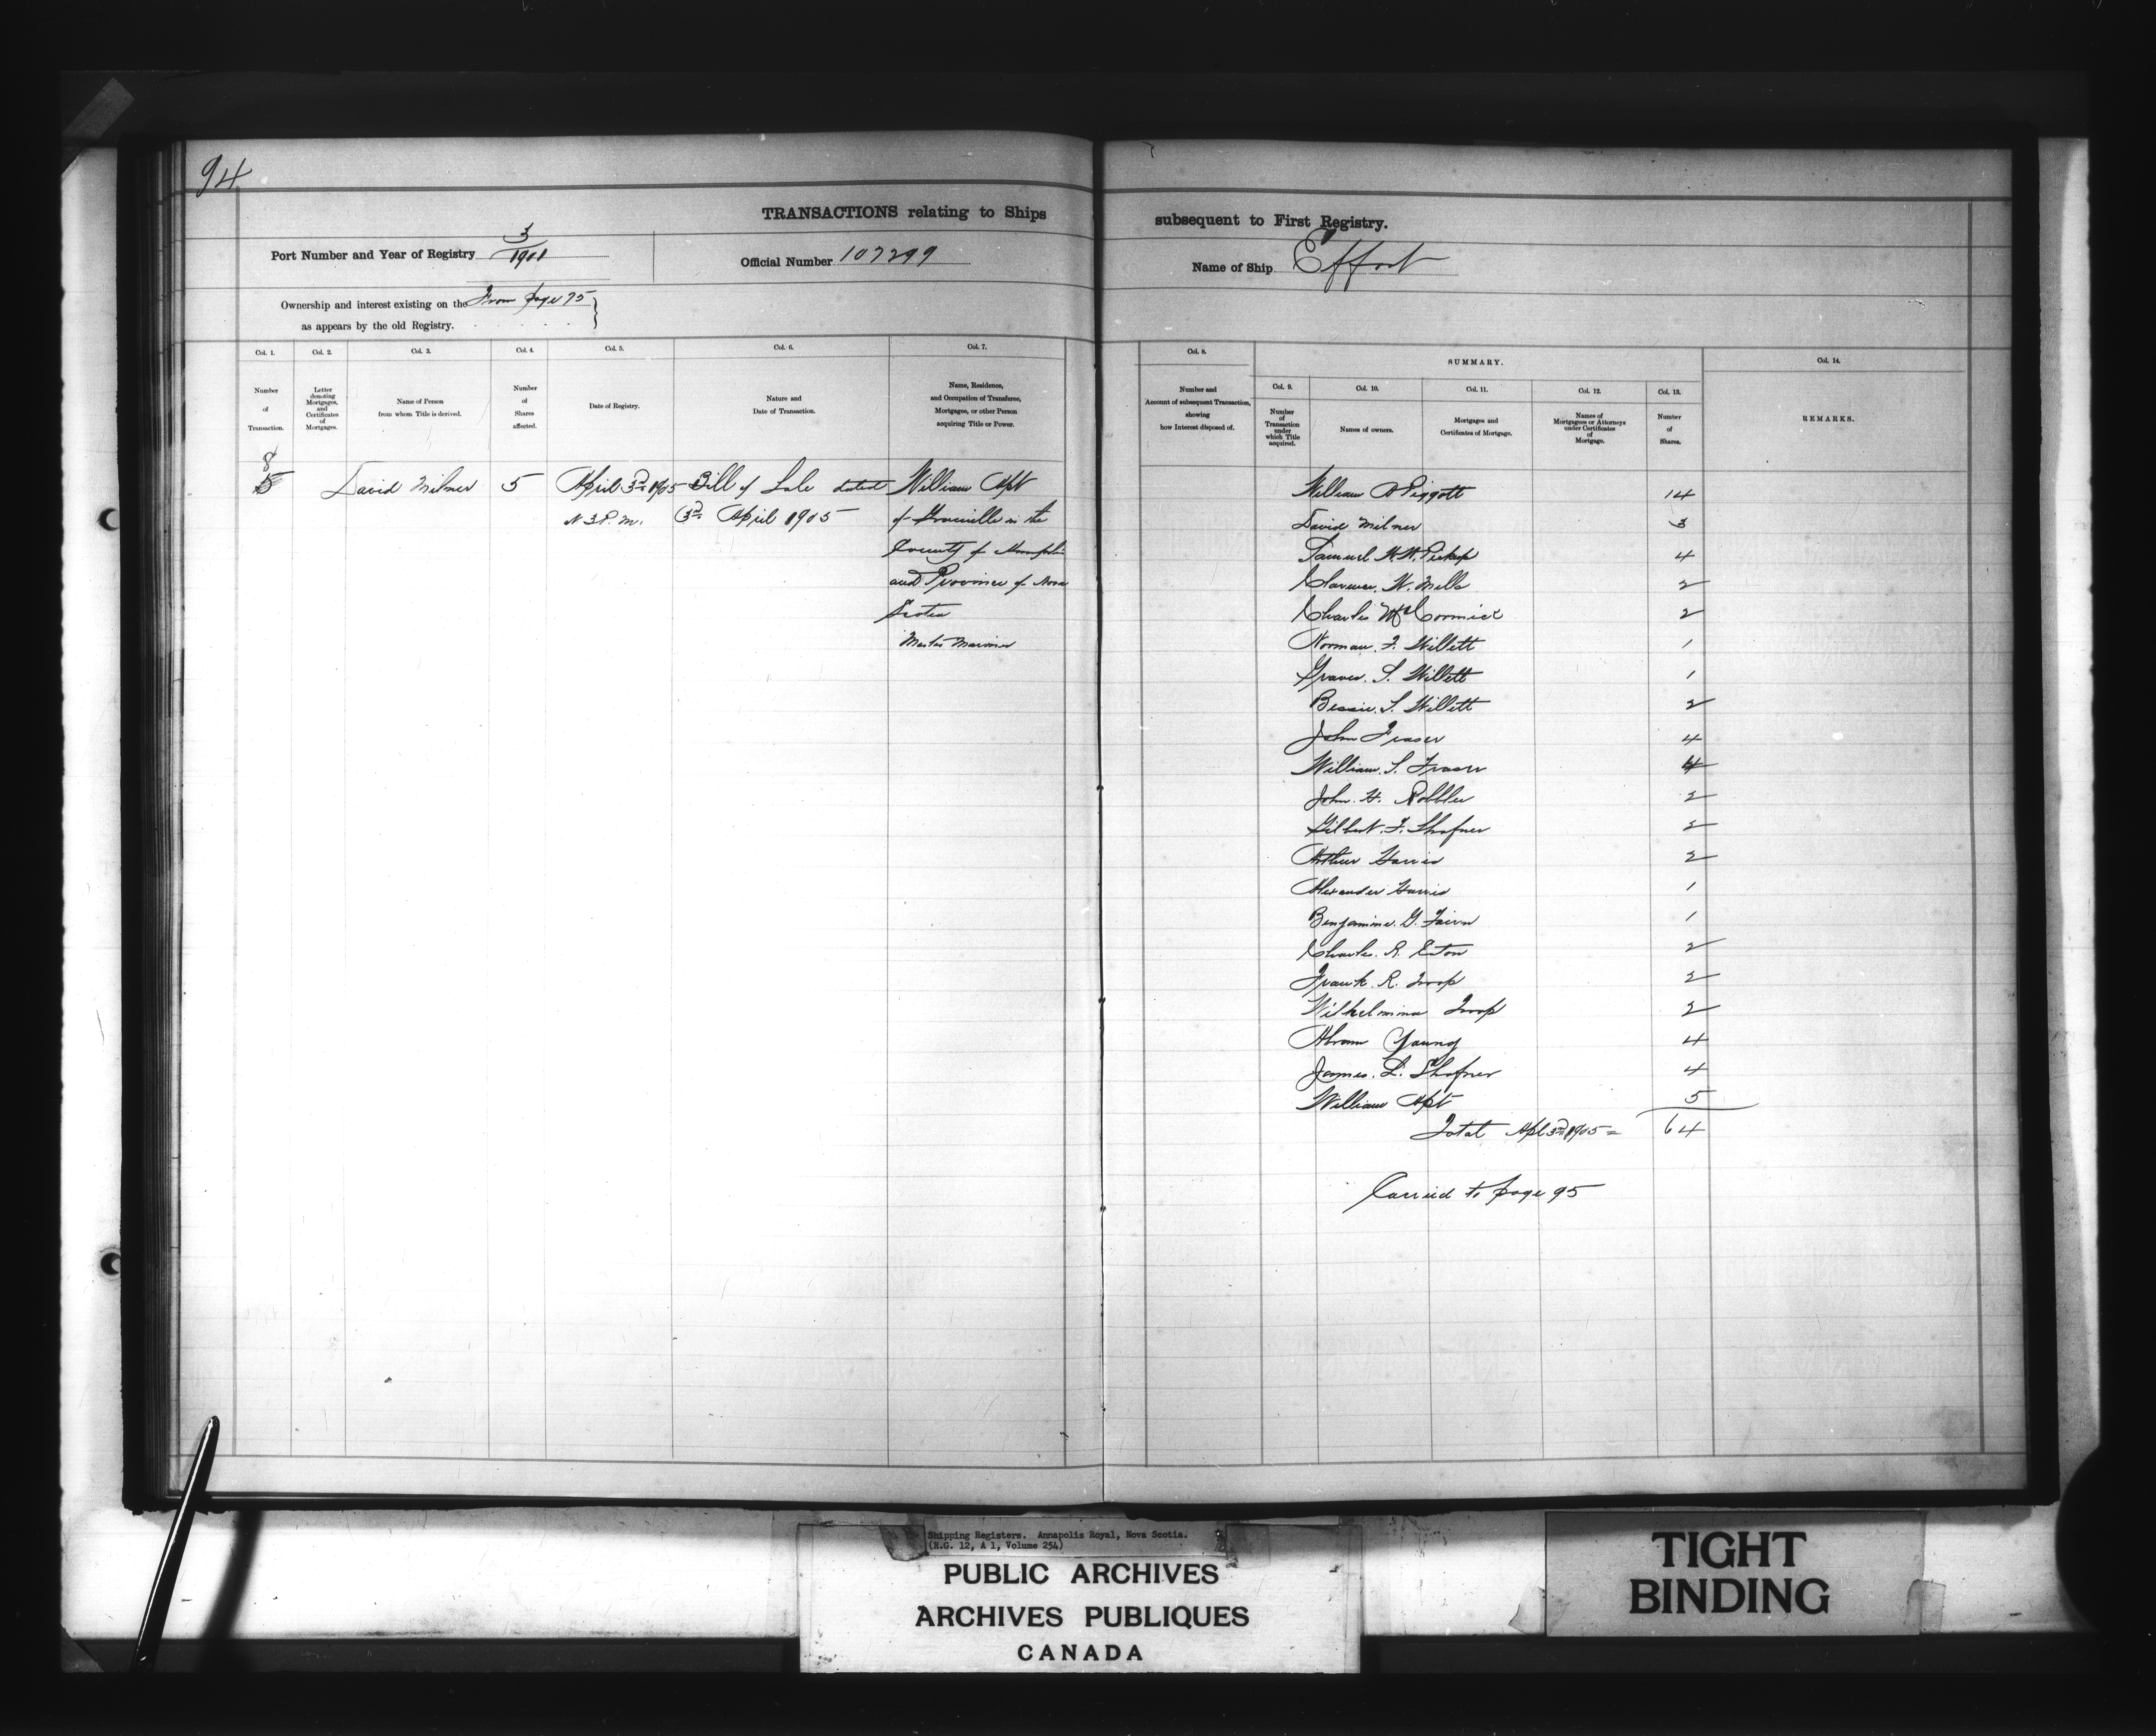 94
TRANSACTIONS relating to Ships subsequent to First Registry.
Port Number and Year of Registry 3/1901 Official Number 107299 Name of Ship Effort
Ownership and interest existing on the From page 75
as appears by the old Registry.
Col. 1. Number of Transaction.
Col. 2. Letter denoting Mortgages, and Certificates of Mortgages.
Col. 3. Name of Person from whom Title is derived.
Col. 4. Number of Shares affected.
Col. 5. Date of Registry.
Col. 6. Nature and Date of Transaction.
Col. 7. Name, Residence, and Occupation of Transferee, Mortgagee, or other Person acquiring Title or Power.
Col. 8. Number and Account of subsequent Transaction, showing how Interest disposed of.
SUMMARY.
Col. 9. Number of Transaction under which Title acquired.
Col. 10. Names of owners.
Col. 11. Mortgages and Certificates of Mortgage.
Col. 12. Names of Mortgagees or Attorneys under Certificates of Mortgage.
Col. 13. Number of Shares.
Col. 14. REMARKS.
8
David Milner 5 April 3rd 1905 Bill of Sale dated William Apt
3 P.m. 3rd April 1905 of Granville in the
County of Annapolis
and Province of Nova
Scotia
Master Mariner
William A Piggott 14
David Milner 3
Samuel W. W. Pickup 4
Clarence. W. Mills 2
Charles McCormick 2
Norman. F. Willett 1
Graves. S. Willett 1
Bessie. S. Willett 2
John Fraser 4
William. S. Fraser 4
John. H. Robblee 2
Gilbert. F. Shafner 2
Arthur Harris 2
Alexander Harris 1
Benjamine. G. Fairn 1
Charles. R. Eaton 2
Frank. R. Troop 2
Wilhelmina Troop 2
Abram Young 4
James. L. Shafner 4
William Apt 5
Total Apl 3rd 1905 = 64
Carried to page 95
Shipping Registers. Annapolis Royal, Nova Scotia.
(R.G. 12, A 1, Volume 254)
PUBLIC ARCHIVES
ARCHIVES PUBLIQUES
CANADA
TIGHT
BINDING